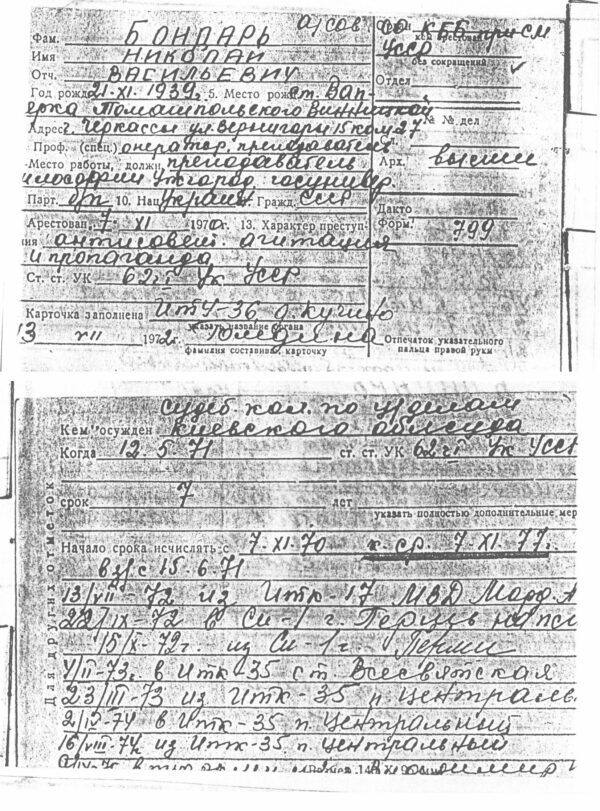 Фам. БОНДАРЬ
Имя НИКОЛАЙ
Отч. ВАСИЛЬЕВИЧ
Год рожд. 21.XI.1939. 5. Место рож. ст. Вап-
нярка Томашпольского Винницкой
Адрес г. Черкассы ул. Вернигоры 15 ком 27
Проф. (спец.) оператор, преподаватель
Место работы, должн. преподаватель
философии Ужгород. госунивер.
Парт. б/п 10. Нац. украин. Гражд. СССР
Арестован 7 XI 1970г. 13. Характер преступ-
ния антисовет. агитация
и пропаганда
Ст. ст. УК 62 УК УССР
Карточка заполнена ИТУ-36 д. Кучино
указать название органа
13 VII 1972г.
фамилия составив. карточку
КГБ при СМ
УССР
без сокращений
Отдел
№ № дел
Арх.
Дакто
Форм. 799
Отпечаток указательного
пальца правой руки
судеб. кол. по уг делам
Кем осужден Киевского облсуда
Когда 12.5.71 ст. ст. УК 62 УК УССР
срок 7 лет
указать полностью дополнительные мер
Начало срока исчислять с 7.XI.70 к-ср. 7.XI.77г.
в з/с 15.6.71
13/VII-72 из ИТК-17 МВД Морд. А
в СИ-1 г.
15/IX-72г. из СИ-1 г. Перми
4/II-73г. в ИТК-35 ст. Всесвятская
23/III-73 из ИТК-35 п. Централь
в ИТК-35 п. Центральный
16/VIII-74г. из ИТК-35 п. Центральный
Для других отметок